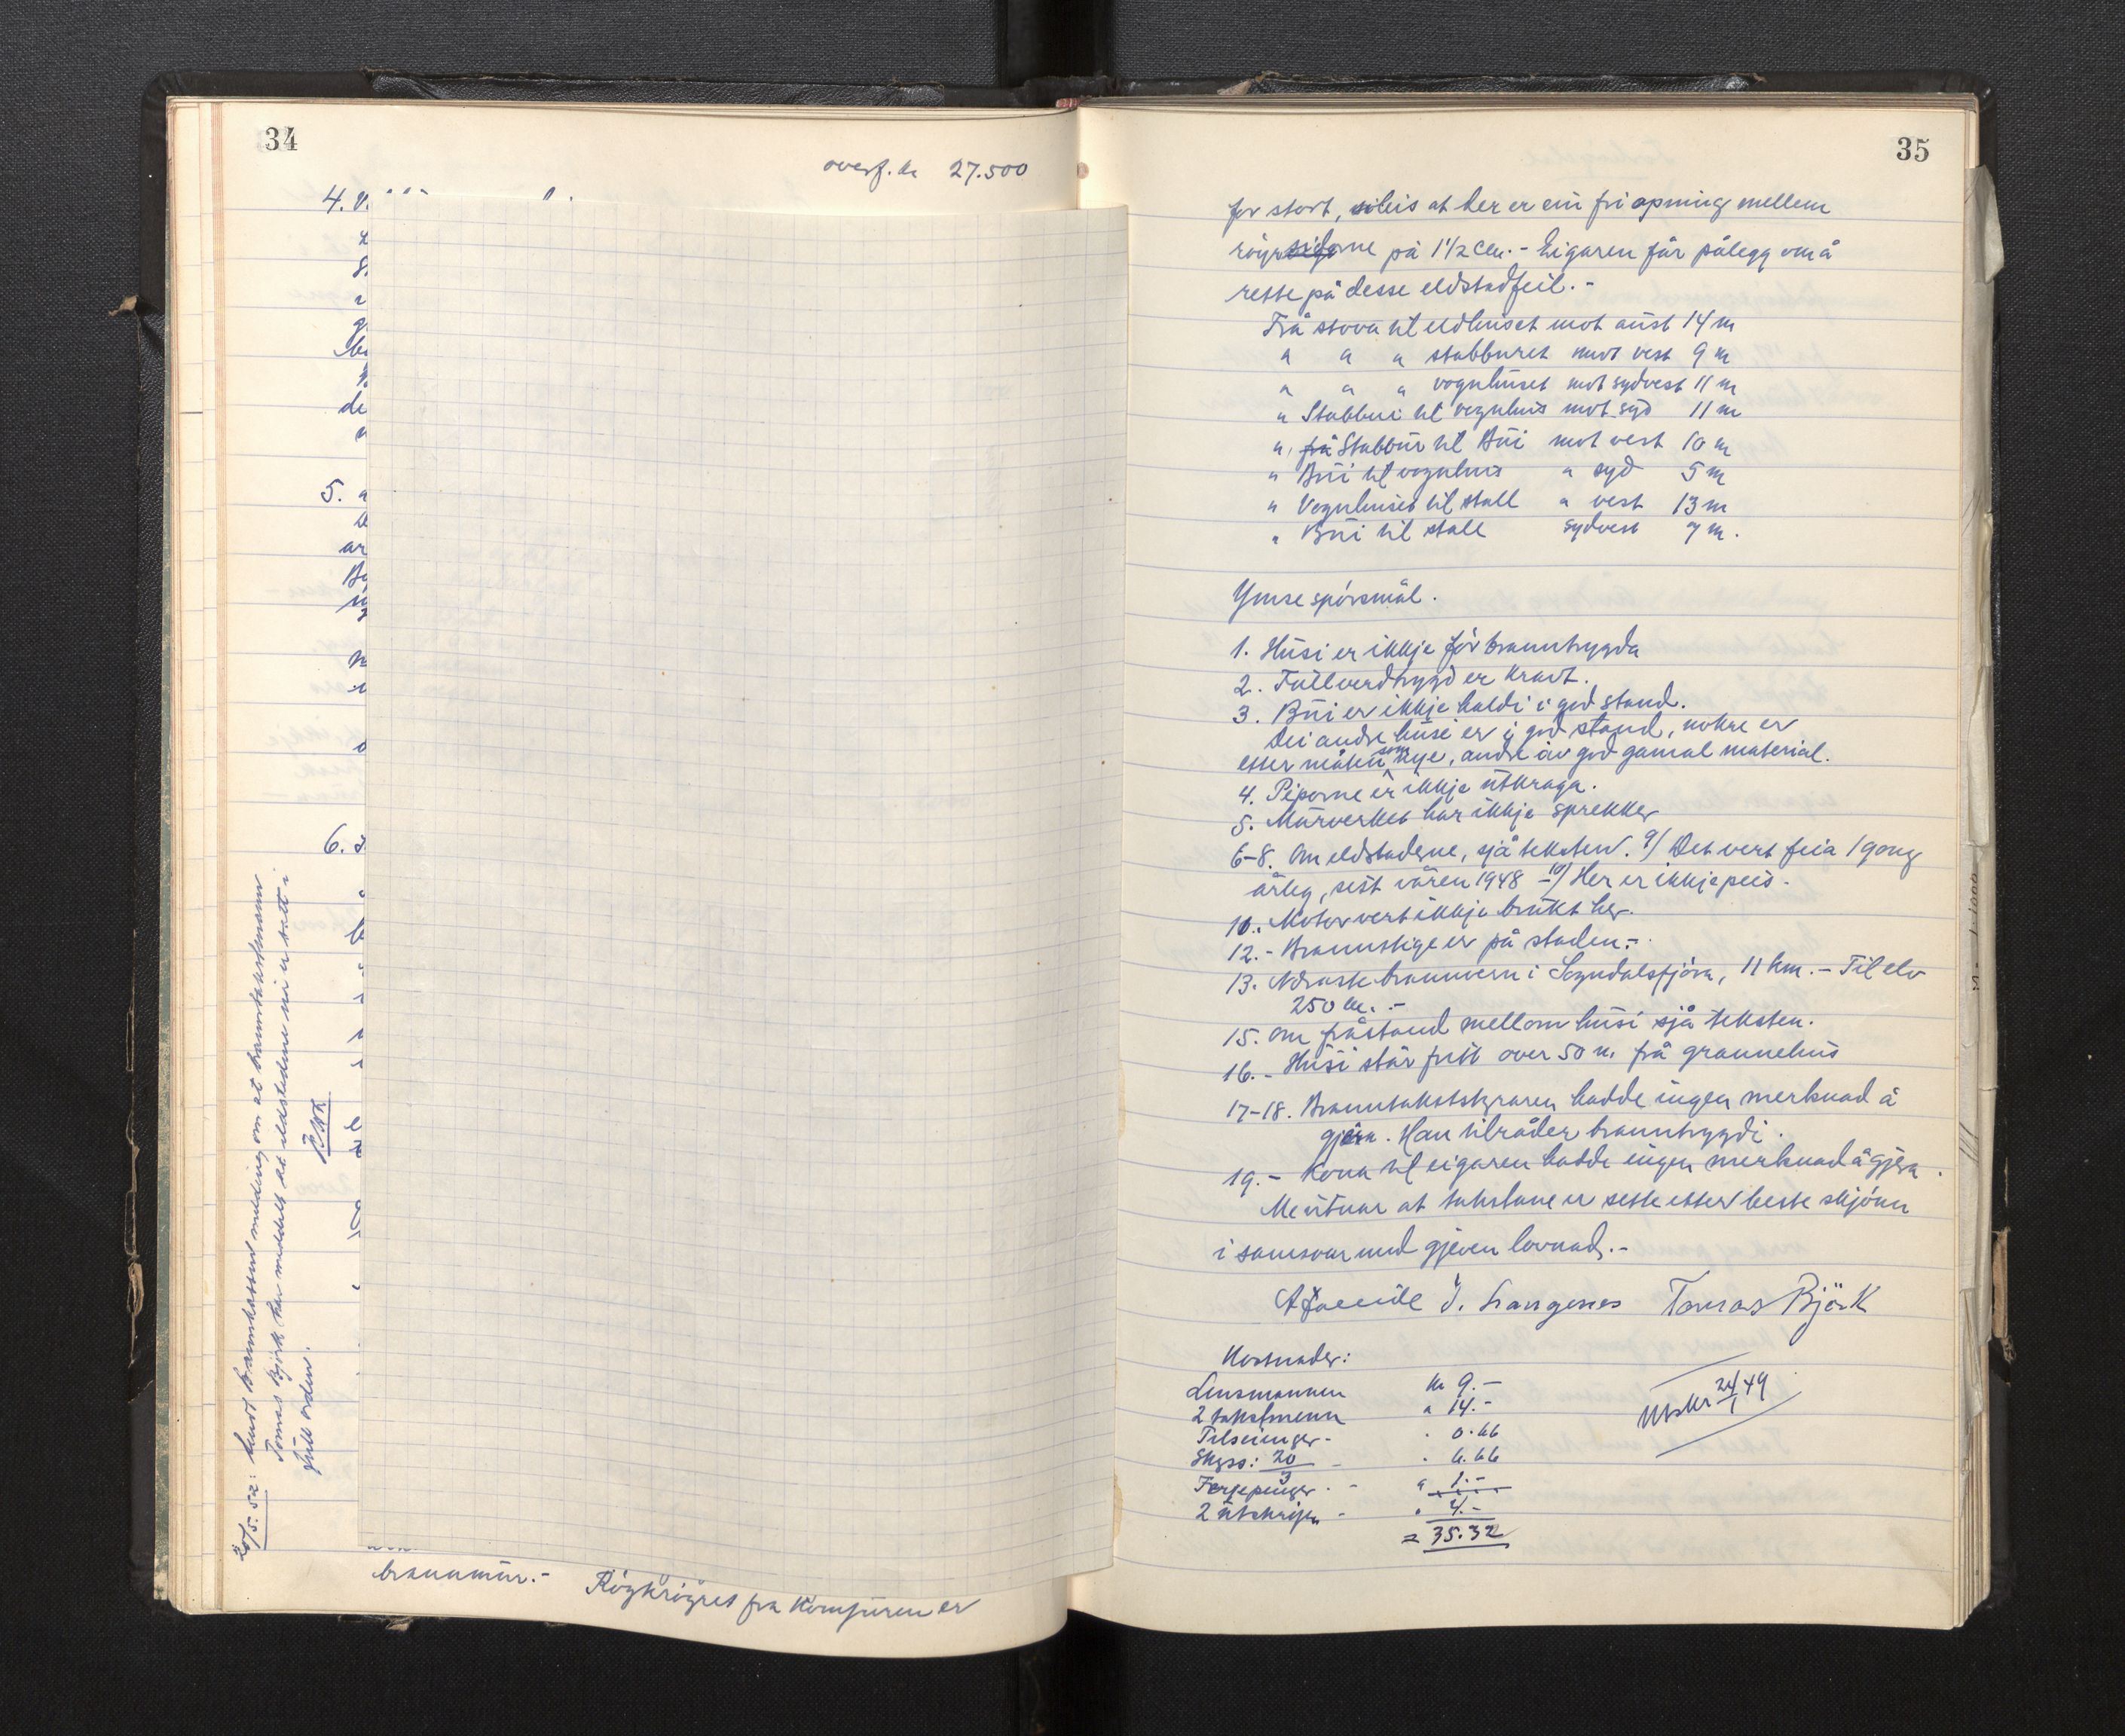 34
overf. kr 27.500
4. V.
5. a
ar
6. s.
de
20/5.52: Sendt brannkassen melding om at branntakstmann
Tomas Bjørk har meddelt at eldstedene nu er satt i
full orden.
brannmur.- Röykröyret fra komfuren er
35
for stort, slik at her er ein fri opning mellem
röyrsidorne på 1 1/2 cm. - Eigaren får pålegg om å
rette på desse eldstadfeil. -
Frå stova til eldhuset mot aust 14 m
" " " stabburet mot vest 9 m
" " " vognhuset mot sydvest 11 m
" Stabbur til vognhus mot syd 11 m
" frå Stabbur til Bui mot vest 10 m
" Bui til vognhus " syd 5 m
" Vognhuset til stall " vest 13 m
" Bui til stall sydvest 7 m.
Ymse spörsmål.
1. Husi er ikkje för branntrygda
2. Fullverdtrygd er kravt.
3. Bui er ikkje haldi i god stand.
Dei andre husi er i god stand, nokre er
etter måten som nye, andre av god gamal material.
4. Piporne er ikkje utkraga.
5. Murverket har ikkje sprekker
6-8. Om eldstaderne, sjå teksten. 9/ Det vert feia 1 gong
årleg, sist våren 1948 - 10/ Her er ikkje peis.
10.. Motor vert ikkje brukt her.
12.- Brannstige er på staden.-
13. Næraste brannvern i Sogndalsfjöra, 11 km. - Til elv
250 m. -
15. Om fråstand mellom husi sjå teksten.
16.- Husi står fritt over 50 m. frå grannehus
17-18. Branntakststyraren hadde ingen merknad å
gjera. Han tilråder branntrygdi.
19.- Kona til eigaren hadde ingen merknad å gjera.
Me vitnar at takstane er sette etter beste skjönn
i samsvar med gjeven lovnad.-
Ö. Trangenes Tomas Björk
Kostnader:
Lensmannen kr 9.-
2 takstmenn " 14.-
Tilseiingar - " 0.66
Skyss: 20/3 - " 6.66
Ferjepengar - " 1.-
2 utskrifter - " 4.-
= 35.32
Utskr 24/1 49